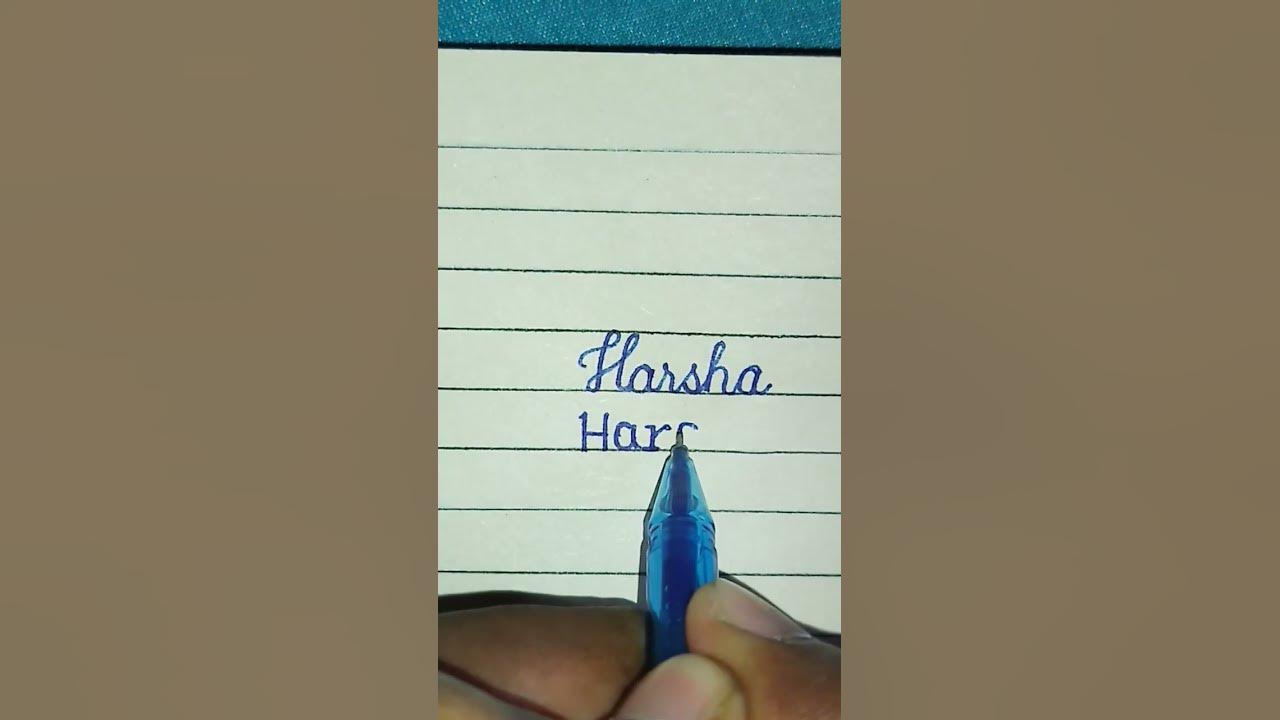 Harsha
Hars